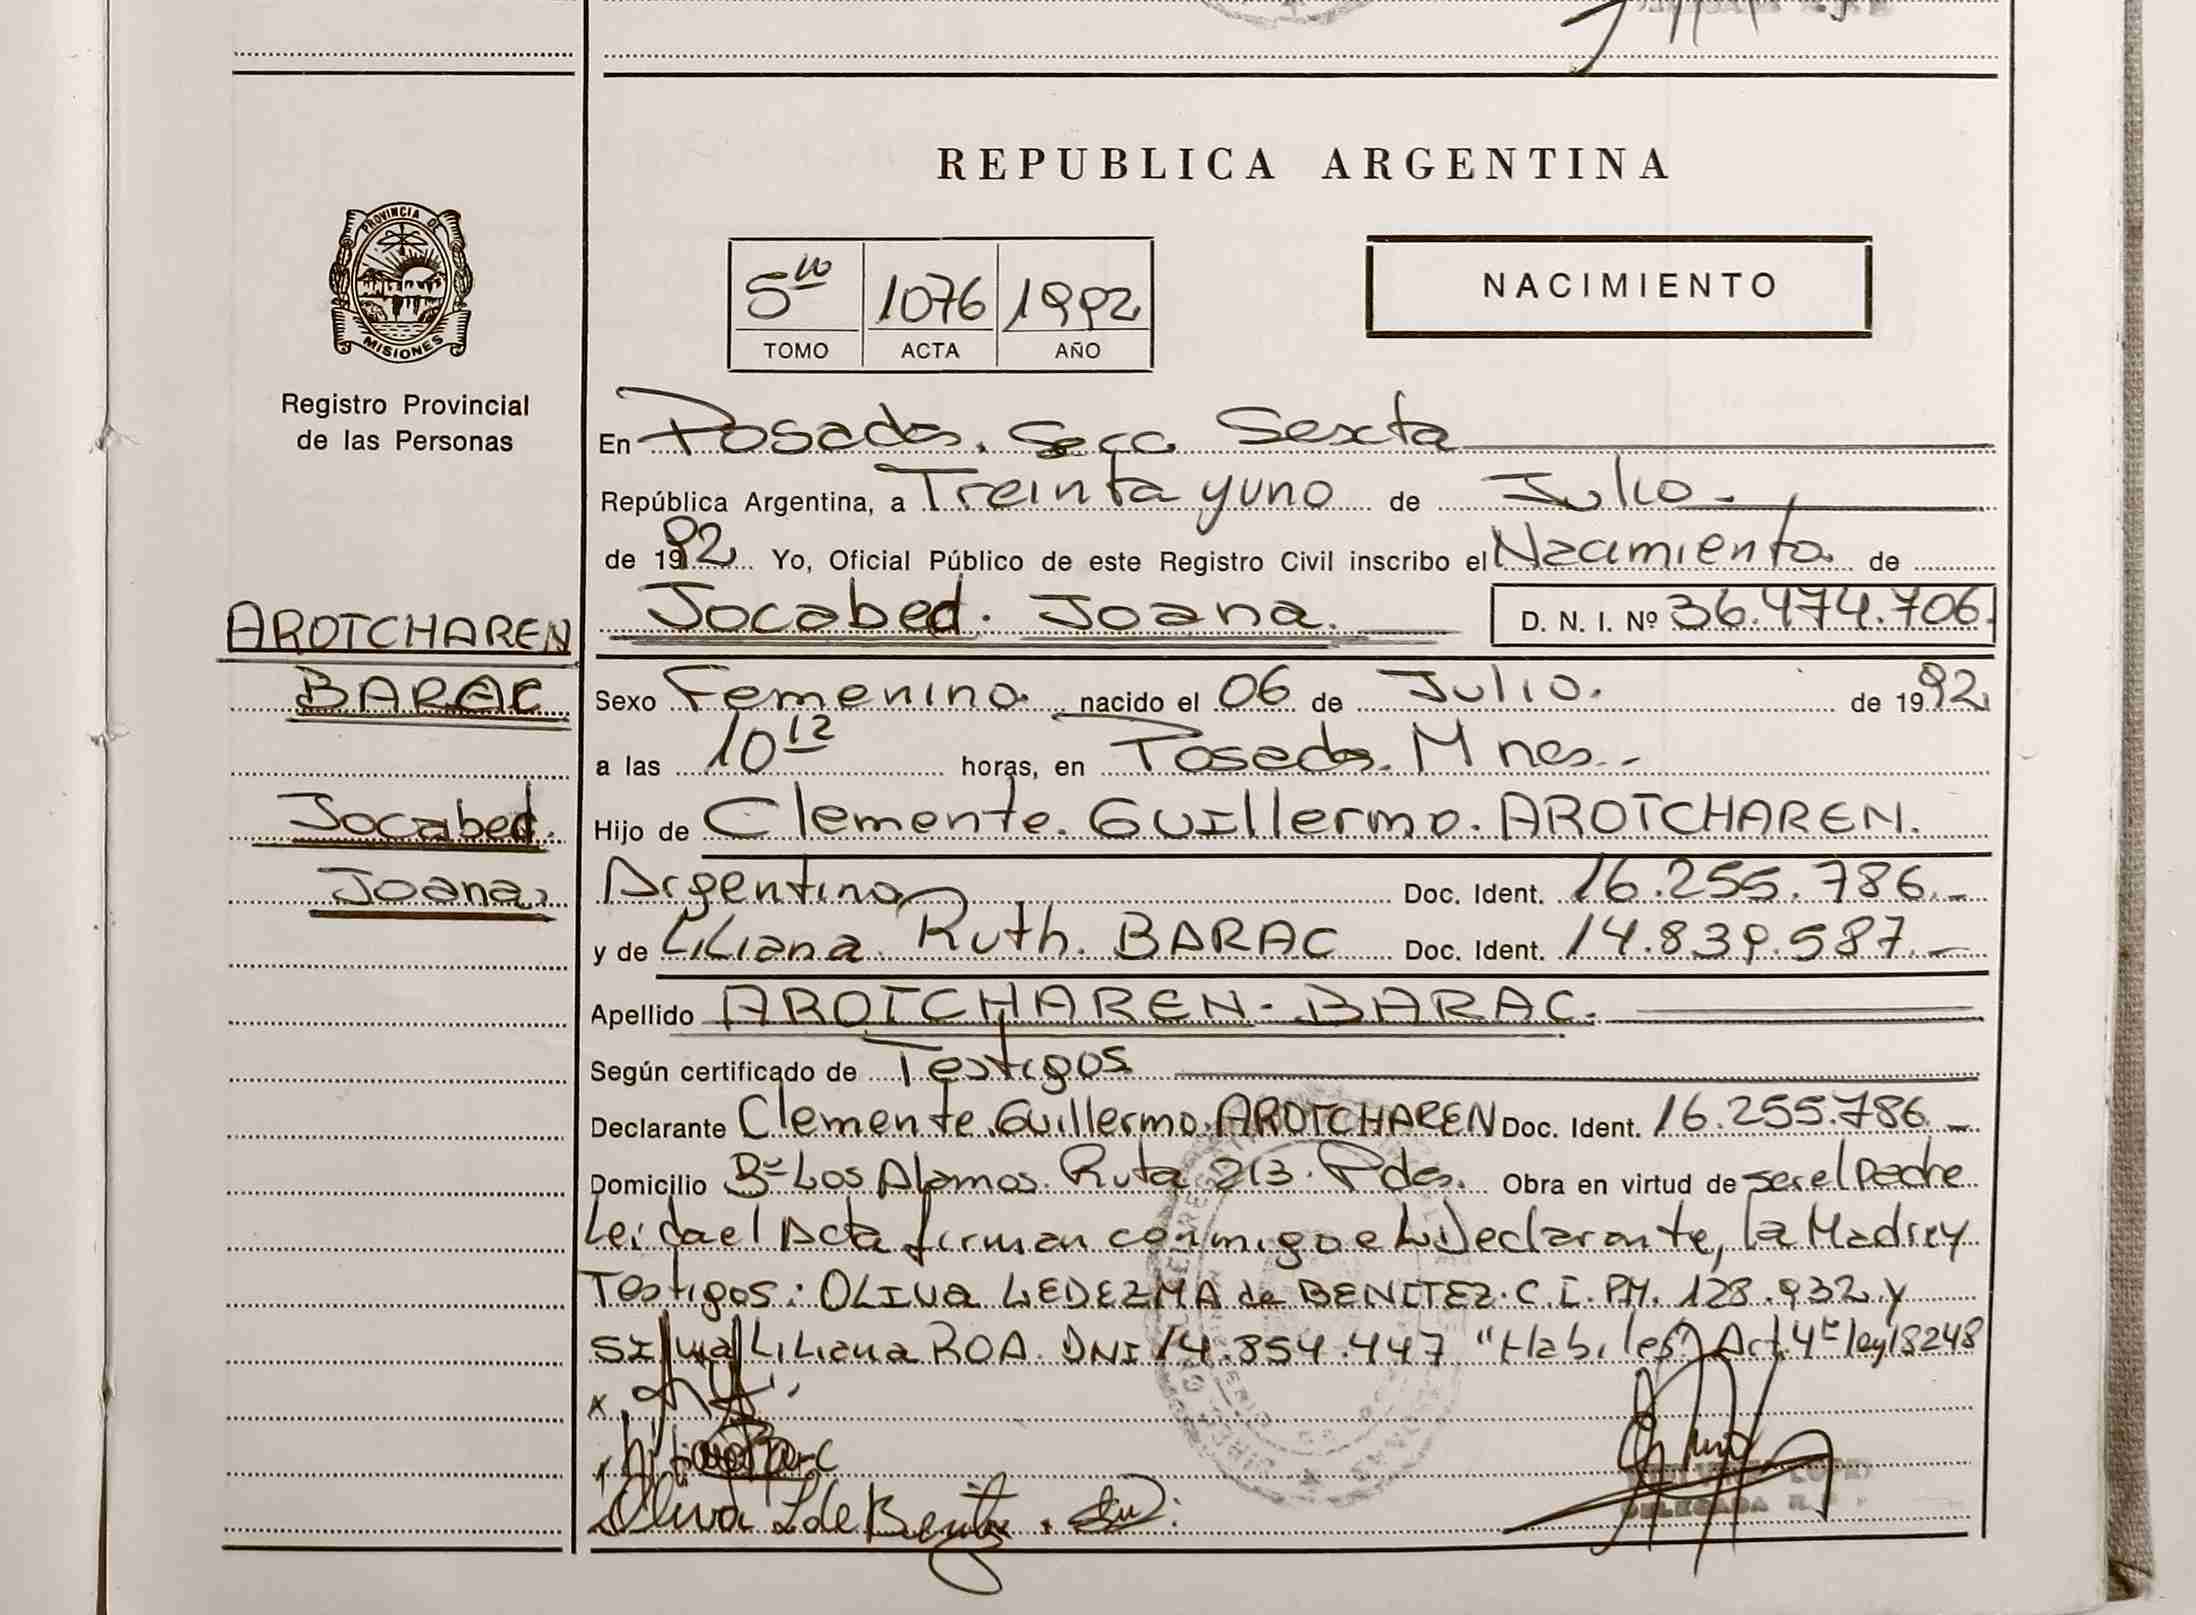 REPUBLICA ARGENTINA
PROVINCIA DE
MISIONES
Registro Provincial
de las Personas
5to 1076 1992
TOMO ACTA AÑO
NACIMIENTO
En Posadas. Secc Sexta
República Argentina, a Treinta y uno de Julio.
de 1992 Yo, Oficial Público de este Registro Civil inscribo el Nacimiento de
Jocabed. Joana. D. N. I. Nº 36.474.706.
AROTCHAREN
BARAC
Jocabed.
Joana.
Sexo Femenino nacido el 06 de Julio. de 1992
a las 10 12 horas, en Posadas. Mnes.-
Hijo de Clemente. Guillermo. AROTCHAREN.
Argentino Doc. Ident. 16.255.786.-
y de Liliana. Ruth. BARAC Doc. Ident. 14.839.587.-
Apellido AROTCHAREN - BARAC.
Según certificado de Testigos
Declarante Clemente. Guillermo. AROTCHAREN Doc. Ident. 16.255.786.-
Domicilio Bº Los Alamos. Ruta 213. Pdas. Obra en virtud de ser el padre
Leida el Acta firman conmigo el Declarante, la Madre y
Testigos: OLIVA LEDEZMA de BENITEZ. C.I. PM. 128.932 y
Silvia Liliana ROA. DNI 14.854.447 "Habiles" Art. 4º ley 18248
Oliva L de Benitez
DELEGADA